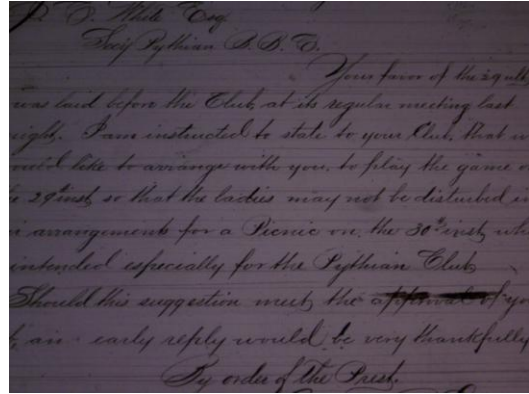 J. C. White Esq.
Secy Pythian B. B. C.
Your favor of the 29 ult
was laid before the Club at its regular meeting last
night. I am instructed to state to your Club, that w
would like to arrange with you, to play the game o
29th inst, so that the ladies may not be disturbed in
arrangements for a Picnic on, the 30th inst, wh
intended especially for the Pythian Club
Should this suggestion meet the approval of yo
an early reply would be very thankfully
By order of the Prest.